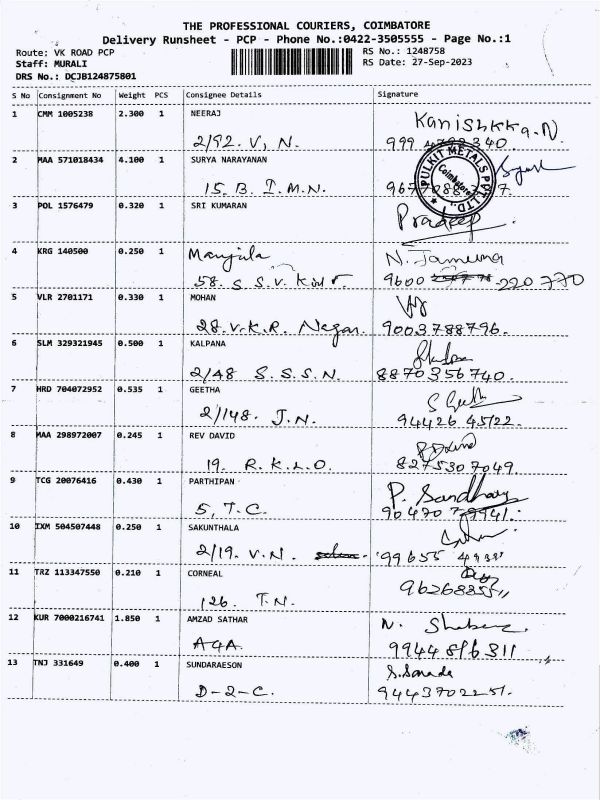 THE PROFESSIONAL COURIERS, COIMBATORE
Delivery Runsheet - PCP - Phone No.:0422-3505555 - Page No.:1
Route: VK ROAD PCP
Staff: MURALI
DRS No.: DCJB124875801
RS No.: 1248758
RS Date: 27-Sep-2023
S No Consignment No Weight PCS Consignee Details Signature
1 CMM 1005238 2.300 1 NEERAJ Kanishkka.N
2/92. V, N.
2 MAA 571018434 4.100 1 SURYA NARAYANAN
PULKIT METALS PVT. LTD. Coimbatore
15. B. I. M.N.
3 POL 1576479 0.320 1 SRI KUMARAN Pradeep.
4 KRG 140500 0.250 1 Manjula N. Jamuna
58. S S.V. 9600 220 770
5 VLR 2701171 0.330 1 MOHAN
28. V.K.R. Nagar. 9003788796.
6 SLM 329321945 0.500 1 KALPANA
2/48 S.S.S.N. 8870356740.
7 HRD 704072952 0.535 1 GEETHA
2/148. J.N. 94426 45122.
8 MAA 298972007 0.245 1 REV DAVID
19. R.K.L.O. 8275307049
9 TCG 20076416 0.430 1 PARTHIPAN P.
5, T.C.
10 IXM 504507448 0.250 1 SAKUNTHALA
2/19. V.N. 99655
11 TRZ 113347550 0.210 1 CORNEAL
126. T.N.
12 KUR 7000216741 1.850 1 AMZAD SATHAR N.
A4A. 9944 816 311
13 TNJ 331649 0.400 1 SUNDARAESON S. Sarada
D-2-C. 9443702251.